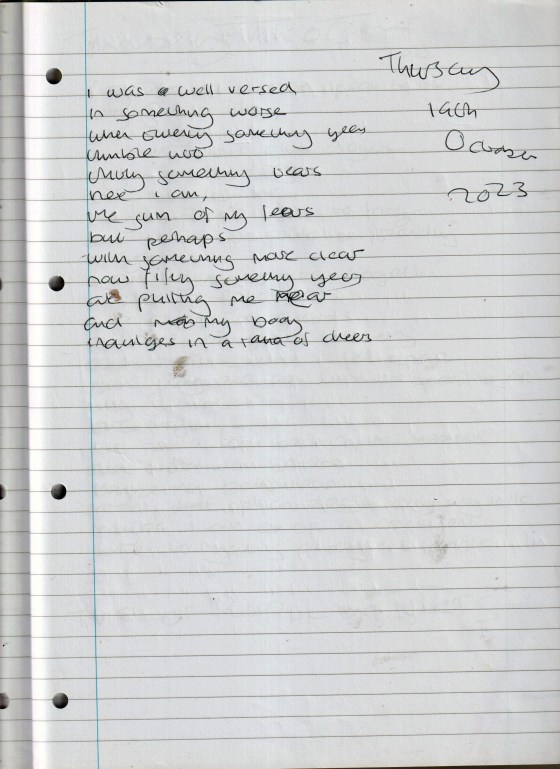 i was a well versed
in something worse
when twenty something years
tumble into
thirty something years
here i am,
the sum of my fears
but perhaps
with something more clear
now fifty something years
are pulling me near
and my body
indulges in a round of cheers
Thursday
19th
October
2023